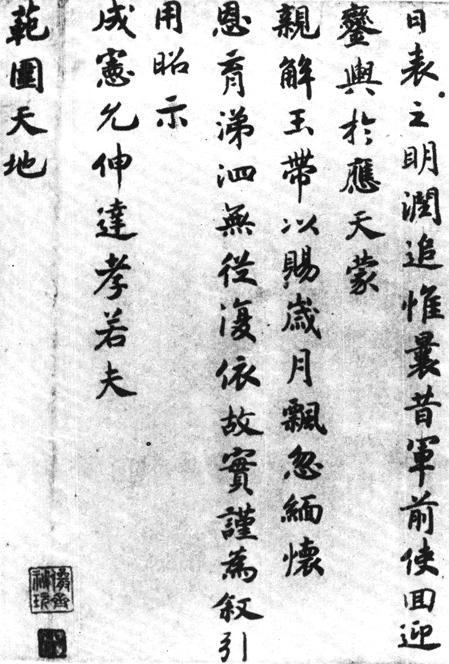 日表之明潤追惟曩昔軍前使回迎
鑾輿於應天蒙
親解玉帶以賜歲月飄忽緬懷
恩育涕泗無從復依故實謹為叙引
用昭示
成憲允伸達孝若夫
範圍天地